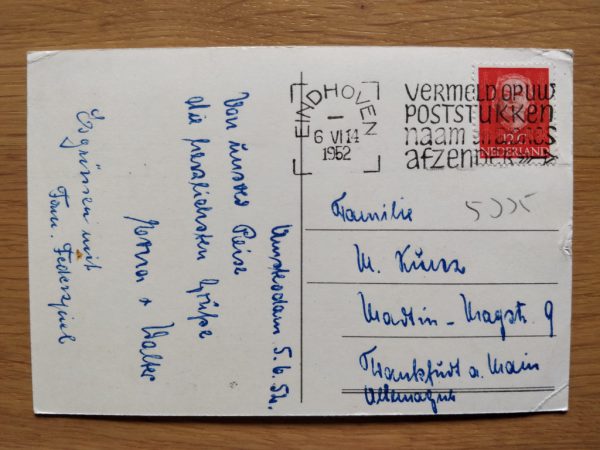 EINDHOVEN
6 VI 14
1952
VERMELD OP UW
POSTSTUKKEN
naam en adres
afzender
NEDERLAND
Amsterdam 5.6.52.
Von unsrer Reise
die herzlichsten Grüße
+ Walter
Es grüssen mit
Fam. Federspiel
Familie
M. Kunz
9
Frankfurt a. Main
Allemagne